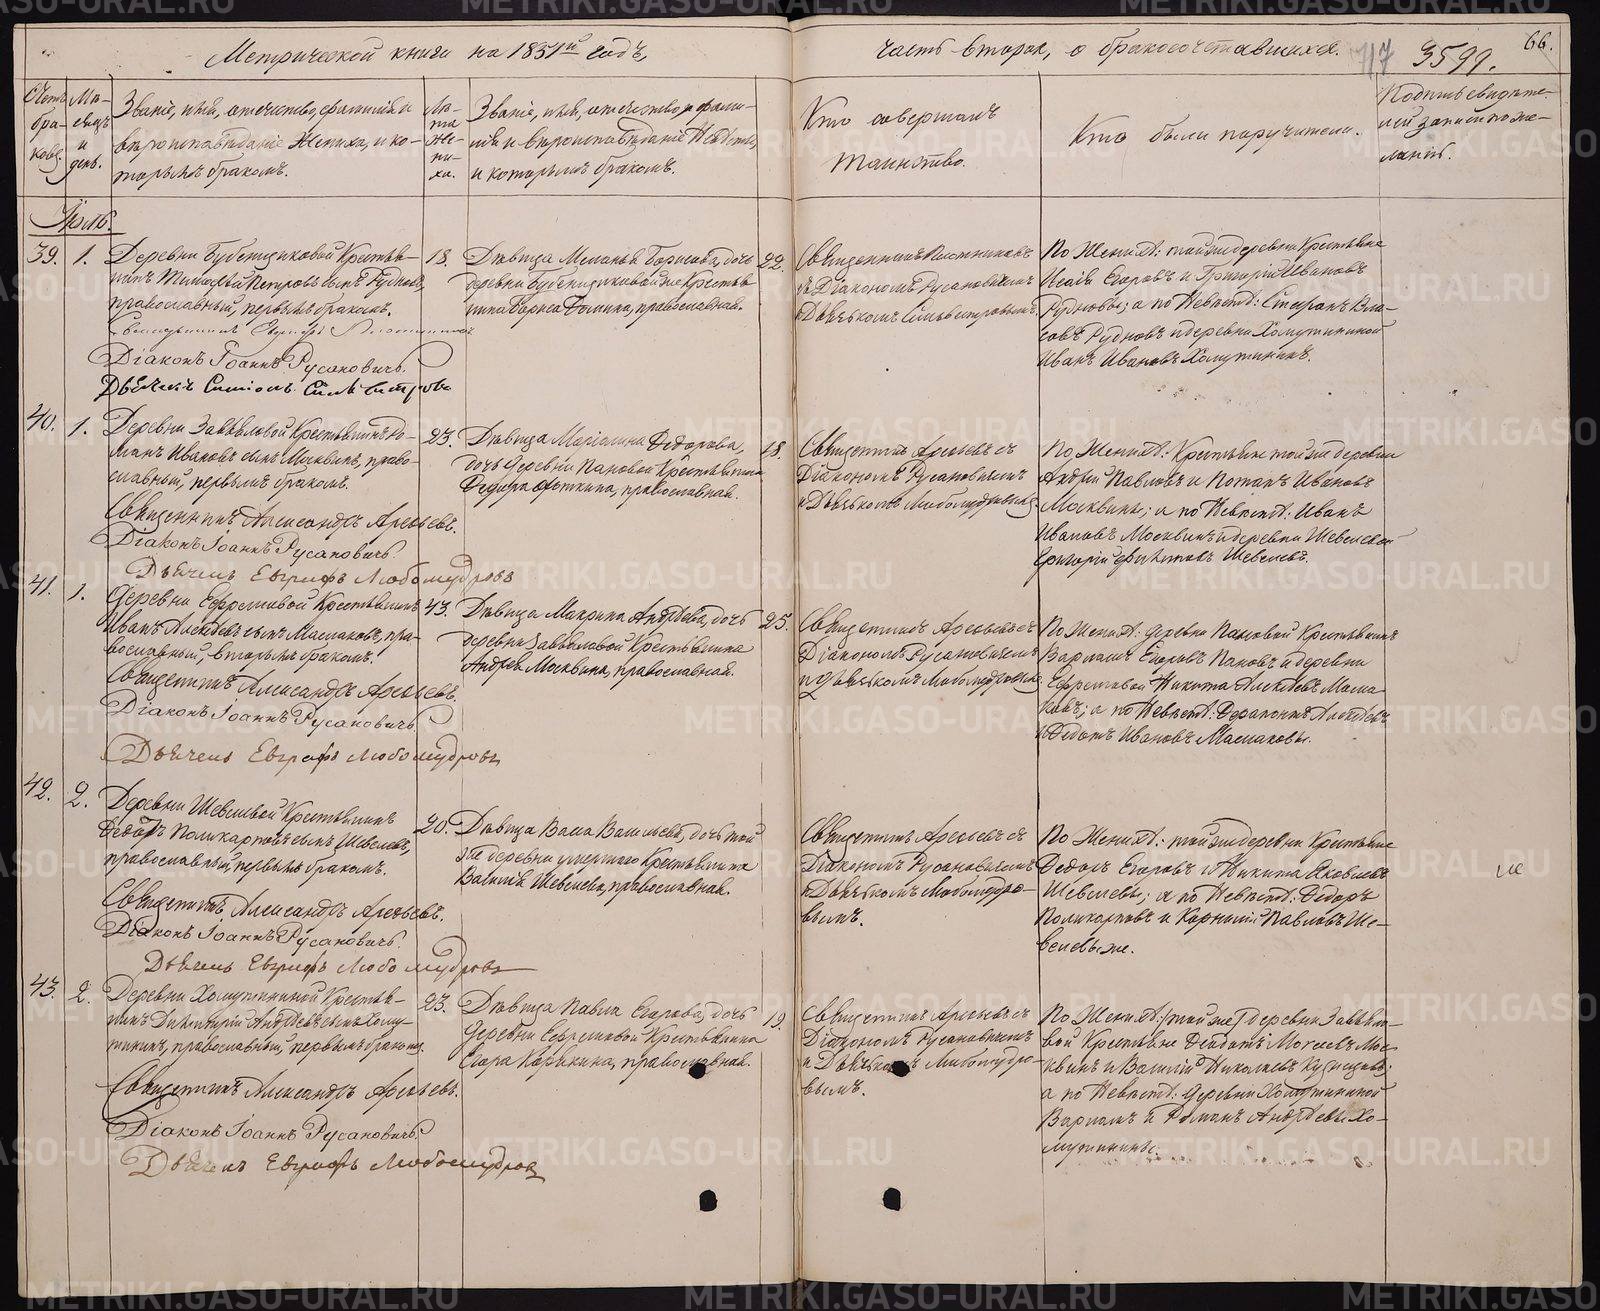 Метрической книги на 1851й годъ,
часть вторая, о бракосочетавшихся.
117
3599.
66.
Счетъ
бра-
ковъ.
Мѣ-
сяцъ
и
день.
Званіе, имя, отчество, фамилія и
вѣроисповѣданіе Жениха, и ко-
торымъ бракомъ.
Лѣ-
та
Же-
ни-
ха.
Званіе, имя, отчество, и фами-
лія и вѣроисповѣданіе Невѣсты,
и которымъ бракомъ.
Кто совершалъ
таинство.
Кто были поручители.
Подпись свидѣте-
лей записи по же-
ланію.
Іюль.
39.
1.
Деревни Бубенщиковой Крестья-
нинъ Петровъ сынъ Рудновъ,
православный, первымъ бракомъ.
Священникъ
Діаконъ Іоаннъ Русановичь.
Дьячекъ Симеонъ Сильвестровъ
18.
Дѣвица Меланья Борисова, дочь
деревни Бубенщиковой же Крестья-
нина Бориса Фомина, православная.
22.
Священникъ
съ Діакономъ Русановичемъ
и Дьячькомъ Сильвестровымъ.
По Женихѣ: той же деревни Крестьяне
Исаія Егоровъ и Григорій Ивановъ
Рудновы; а по Невѣстѣ: Стефанъ Вла-
совъ Рудновъ и деревни Хомутининой
Иванъ Ивановъ Хомутининъ.
40.
1.
Деревни Завьяловой Крестьянинъ Ро-
манъ Ивановъ сынъ Москвинъ, право-
славный, первымъ бракомъ.
Священникъ Александръ Арефьевъ.
Діаконъ Іоаннъ Русановичь.
Дьячекъ Евграфъ Любомудровъ
23.
Дѣвица Маріамна Ѳедорова,
дочь деревни Пановой Крестьянина
Ѳедора Фоткина, православная.
18.
Священникъ Арефьевъ съ
Діакономъ Русановичемъ
и Дьячькомъ Любомудровымъ
По Женихѣ: Крестьяне той же деревни
Андрей Павловъ и Потапъ Ивановъ
Москвины; а по Невѣстѣ: Иванъ
Ивановъ Москвинъ и деревни Шевелевой
Григорій Филиповъ Шевелевъ.
41.
1.
Деревни Ефремовой Крестьянинъ
Иванъ Алексѣевъ сынъ Маслаковъ, пра-
вославный, вторымъ бракомъ.
Священникъ Александръ Арефьевъ.
Діаконъ Іоаннъ Русановичь.
Дьячекъ Евграфъ Любомудровъ
43.
Дѣвица Макрина Андреева, дочь
деревни Завьяловой Крестьянина
Андрея Москвина, православная.
25.
Священникъ Арефьевъ съ
Діакономъ Русановичемъ
и Дьячькомъ Любомудровымъ
По Женихѣ: деревни Пановой Крестьянинъ
Варламъ Егоровъ Пановъ и деревни
Ефремовой Никита Алексѣевъ Масла-
ковъ; а по Невѣстѣ: Ферапонтъ Алексѣевъ
и Ѳедотъ Ивановъ Маслаковы.
42.
2.
Деревни Шевелевой Крестьянинъ
Ѳедоръ Поликарповъ сынъ Шевелевъ,
православный, первымъ бракомъ.
Священникъ Александръ Арефьевъ.
Діаконъ Іоаннъ Русановичь.
Дьячекъ Евграфъ Любомудровъ
20.
Дѣвица Васа Васильева, дочь той
же деревни умершаго Крестьянина
Василія Шевелева, православная.
Священникъ Арефьевъ съ
Діакономъ Русановичемъ
и Дьячькомъ Любомудро-
вымъ.
По Женихѣ: той же деревни Крестьяне
Ѳедоръ Егоровъ и Никита Яковлевъ
Шевелевы; а по Невѣстѣ: Ѳедоръ
Поликарповъ и Корнилій Павловъ Ше-
велевы же.
43.
2.
Деревни Хомутининой Крестья-
нинъ Димитрій Андреевъ сынъ Хому-
тининъ, православный, первымъ бракомъ.
Священникъ Александръ Арефьевъ.
Діаконъ Іоаннъ Русановичь.
Дьячекъ Евграфъ Любомудровъ
23.
Дѣвица Павла Егорова, дочь
деревни Ефремовой Крестьянина
Егора Карякина, православная.
19.
Священникъ Арефьевъ съ
Діакономъ Русановичемъ
и Дьячькомъ Любомудро-
вымъ.
По Женихѣ: (той же) деревни Завьяло-
вой Крестьяне Ѳедотъ Моисеевъ Мос-
квинъ и Василій Николаевъ Кузнецовъ;
а по Невѣстѣ: деревни Хомутининой
Варламъ и Романъ Андреевы Хо-
мутинины.
METRIKI.GASO-URAL.RU